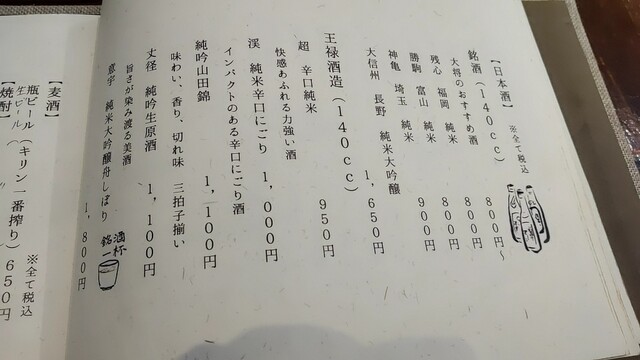 【日本酒】 ※全て税込
銘酒（140cc） 800円～
大将のおすすめ酒 800円
残心 福岡 純米 800円
勝駒 富山 純米 900円
神亀 埼玉 純米
大信州 長野 純米大吟醸 1,650円
王禄酒造（140cc）
超 辛口純米 950円
快感あふれる力強い酒
渓 純米辛口にごり 1,000円
インパクトのある辛口にごり酒
純吟山田錦 1,100円
味わい、香り、切れ味 三拍子揃い
丈径 純吟生原酒 1,100円
旨さが染み渡る美酒
意宇 純米大吟醸舟しぼり 1,800円
酒杯
銘一
【麦酒】 ※全て税込
瓶ビール（キリン一番搾り）650円
生ビール（
【焼酎】 円